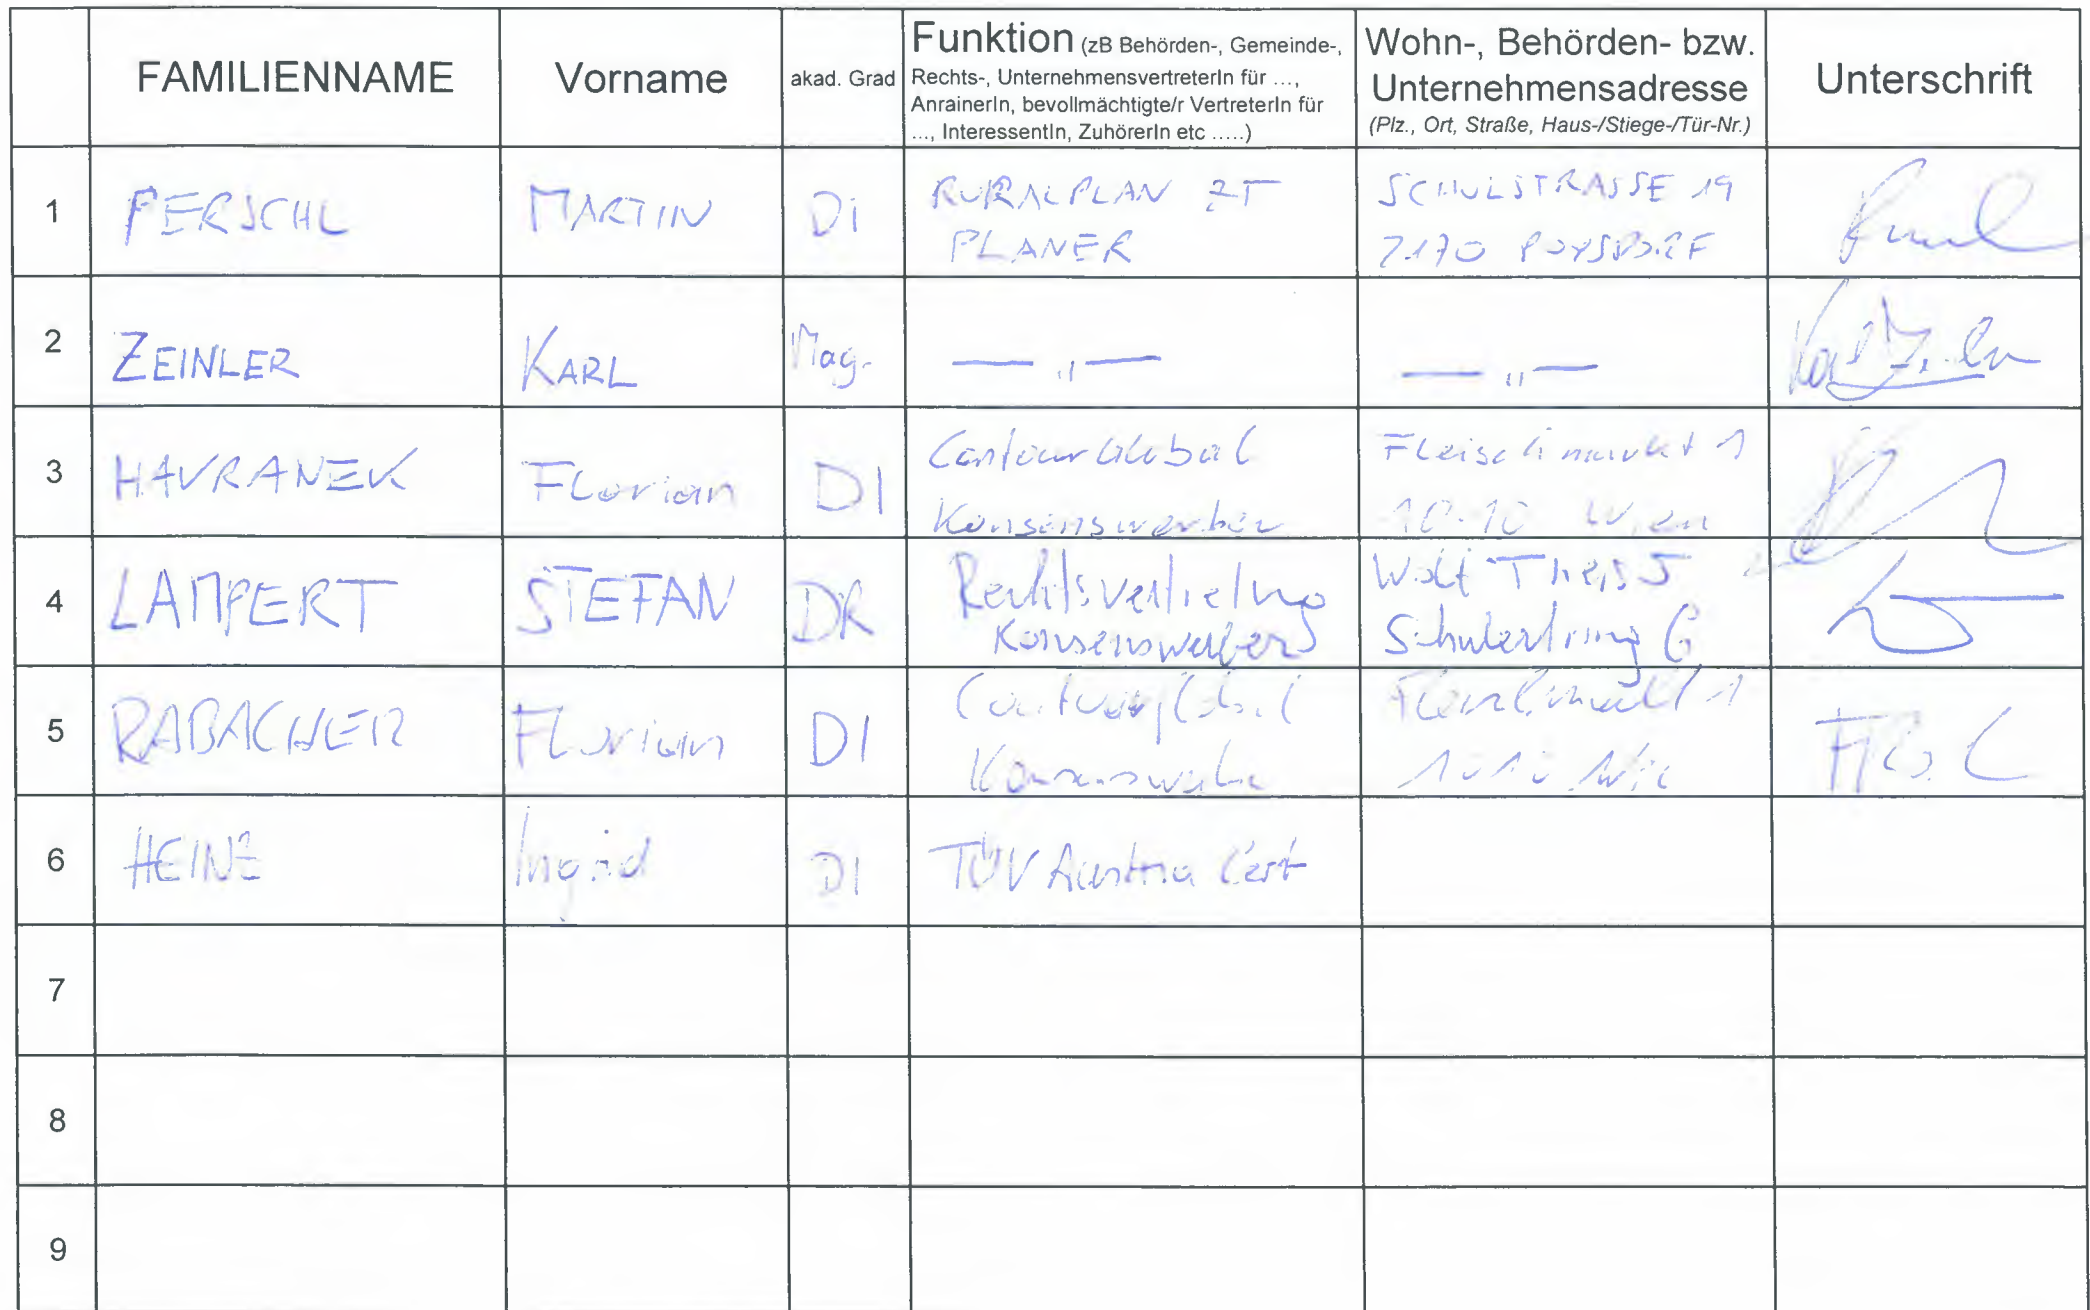 FAMILIENNAME
Vorname
akad. Grad
Funktion (zB Behörden-, Gemeinde-,
Rechts-, UnternehmensvertreterIn für ...,
AnrainerIn, bevollmächtigte/r VertreterIn für
..., InteressentIn, ZuhörerIn etc .....)
Wohn-, Behörden- bzw.
Unternehmensadresse
(Plz., Ort, Straße, Haus-/Stiege-/Tür-Nr.)
Unterschrift
1
PERSCHL
MARTIN
DI
RURALPLAN ZT
PLANER
SCHULSTRASSE 19
2170 POYSDORF
2
ZEINLER
KARL
Mag.
— " —
— " —
3
HAVRANEK
Florian
DI
ContourGlobal
Konsenswerber
Fleischmarkt 1
1010 Wien
4
LAMPERT
STEFAN
DR
Rechtsvertretung
Konsenswerber
Wolf Theiss
Schubertring 6
5
RABACHER
Florian
DI
ContourGlobal
Konsenswerber
Fleischmarkt 1
1010 Wien
6
HEINZ
Ingrid
DI
TÜV Austria Cert
7
8
9